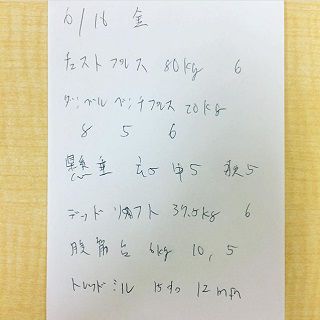 6/16 金
チェストプレス 80kg 6
ダンベルベンチプレス 20kg
8 5 6
懸垂 広5 中5 狭5
デッドリフト 37.5kg 6
腹筋台 6kg 10, 5
トレッドミル 12min